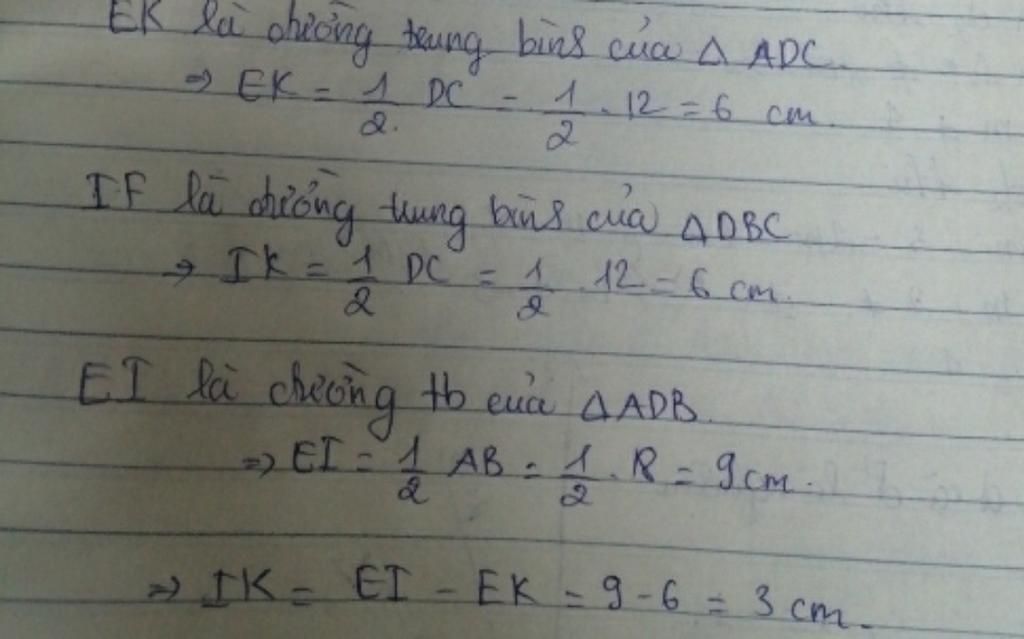 EK là đường trung bình của Δ ADC.
=> EK = 1/2 DC = 1/2 . 12 = 6 cm
IF là đường trung bình của ΔDBC
=> IK = 1/2 DC = 1/2 . 12 = 6 cm.
EI là đường tb của ΔADB.
=> EI = 1/2 AB = 1/2 . = 9cm.
=> IK = EI - EK = 9 - 6 = 3 cm.